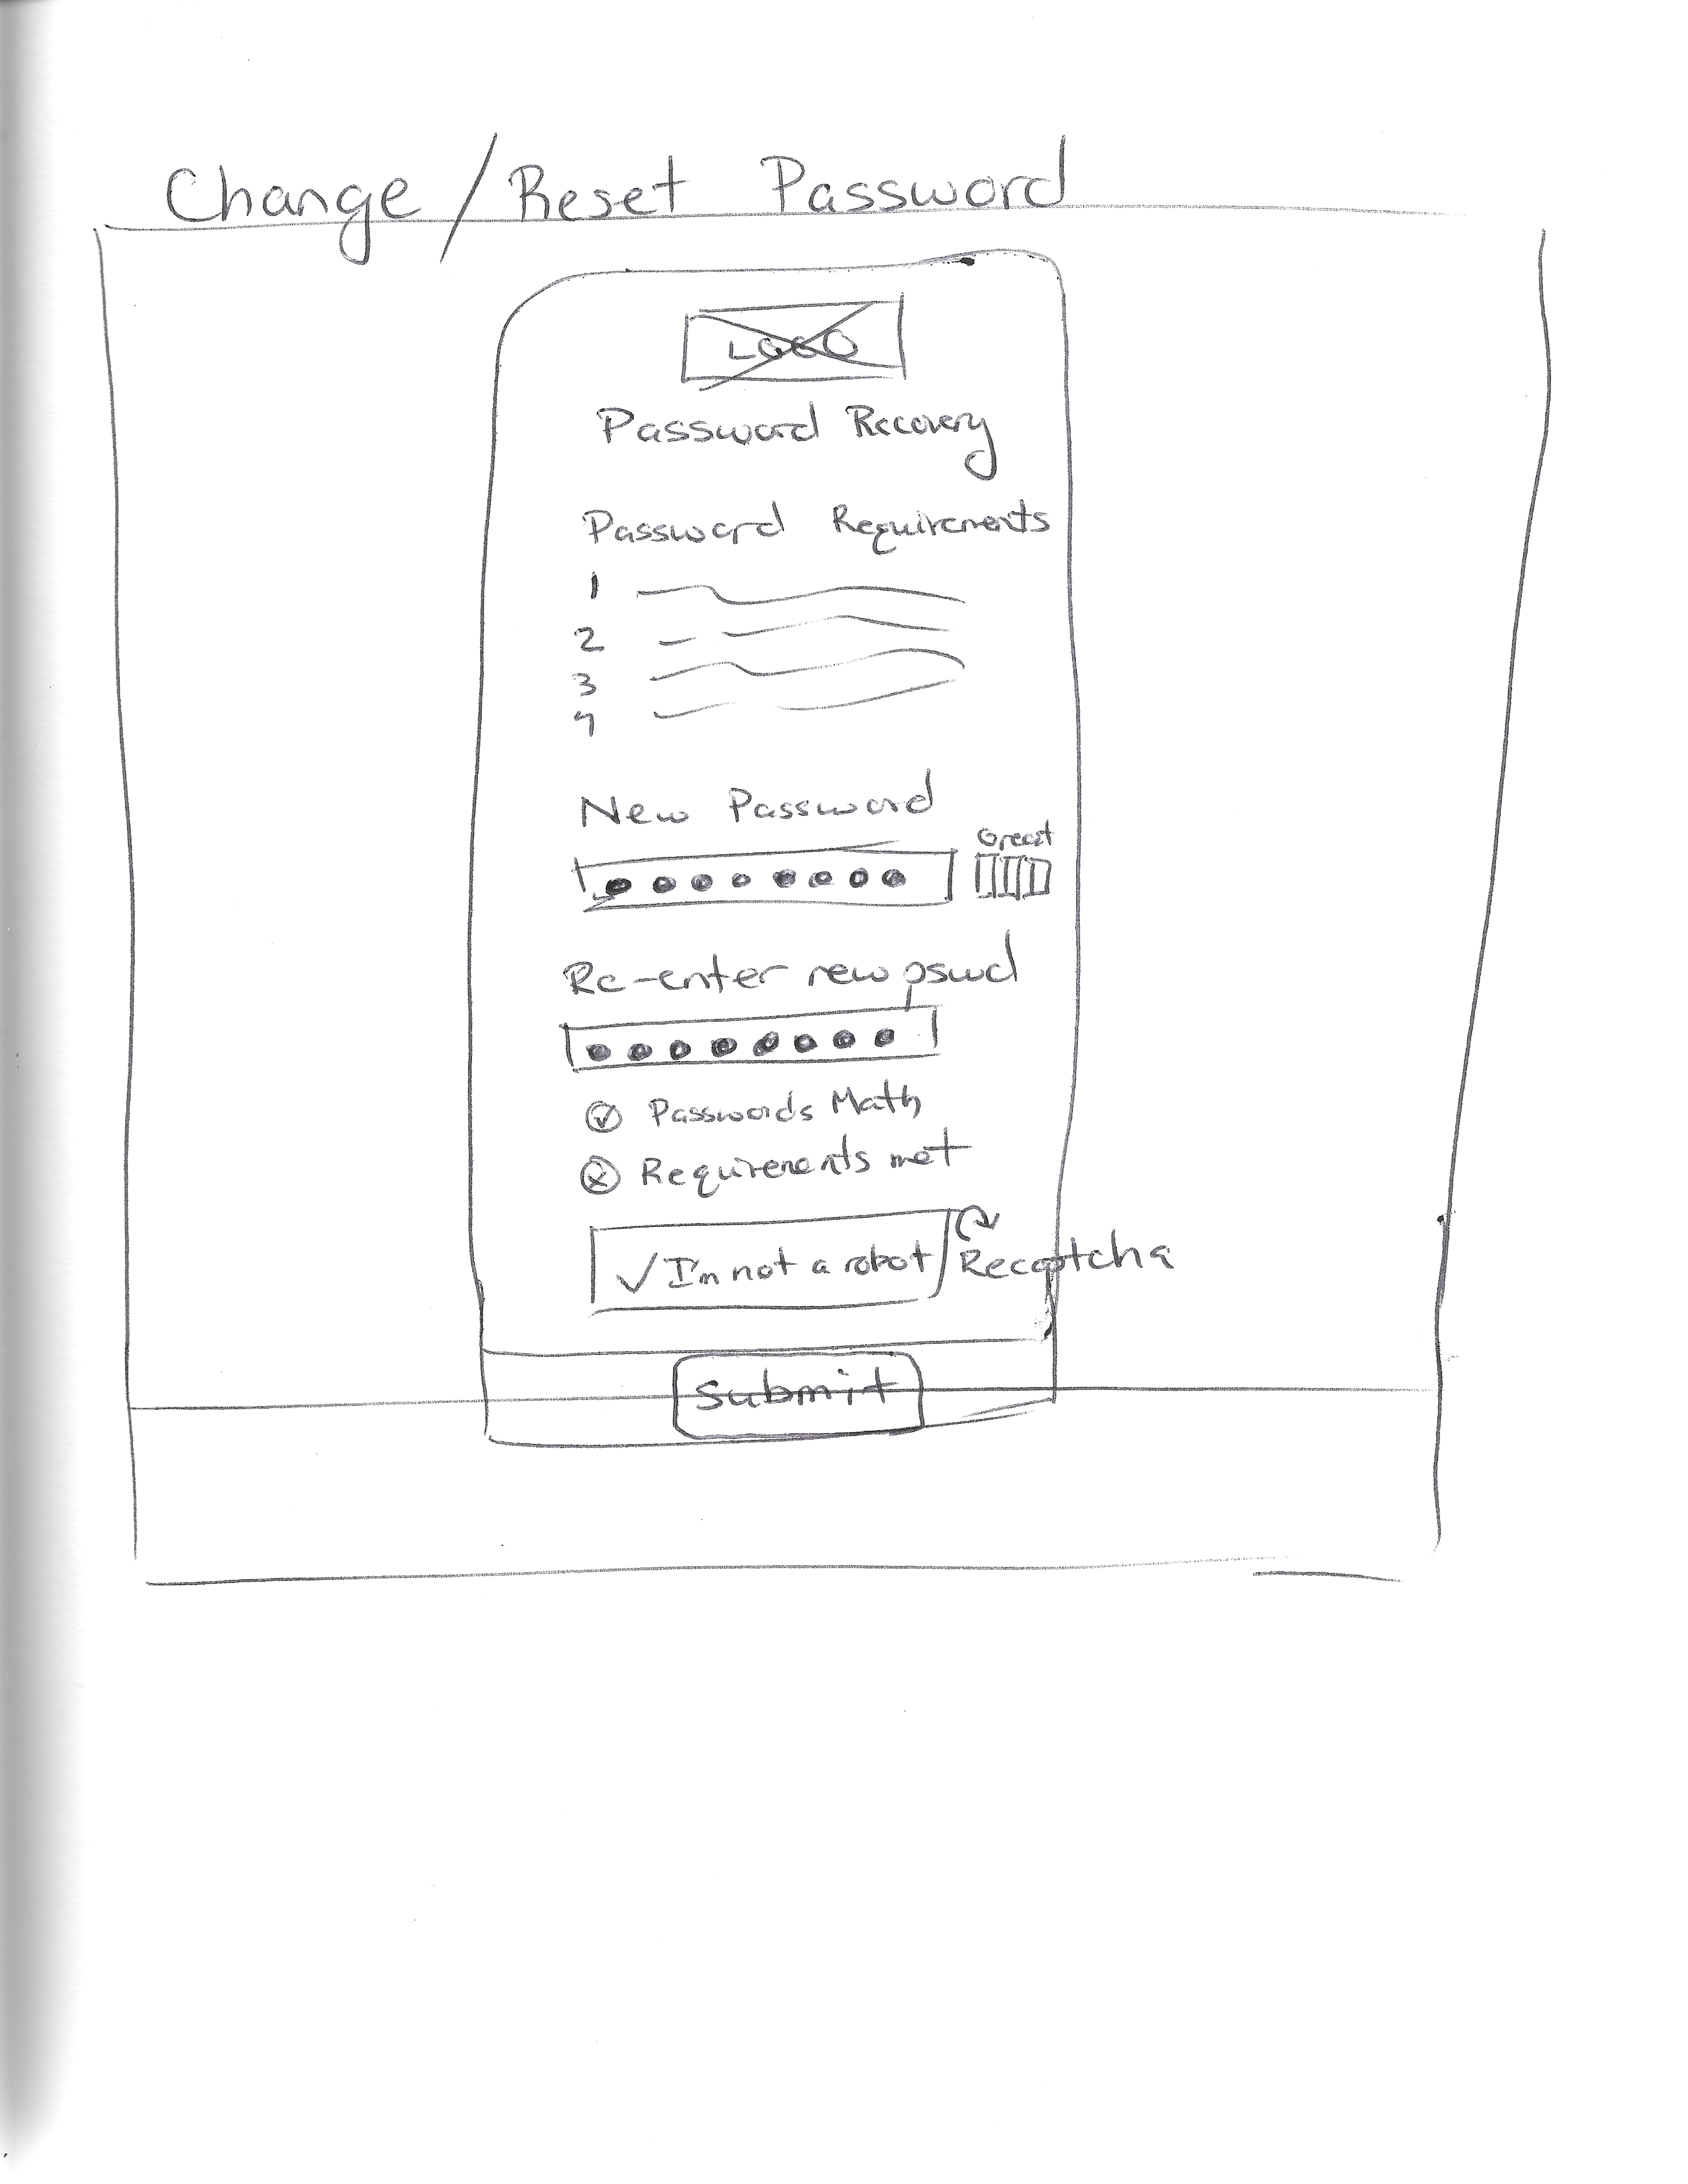 Change / Reset Password
LOGO
Password Recovery
Password Requirements
1
2
3
4
New Password
Great
Re-enter new pswd
Passwords Math
Requirements met
✓ I'm not a robot
Recaptcha
submit